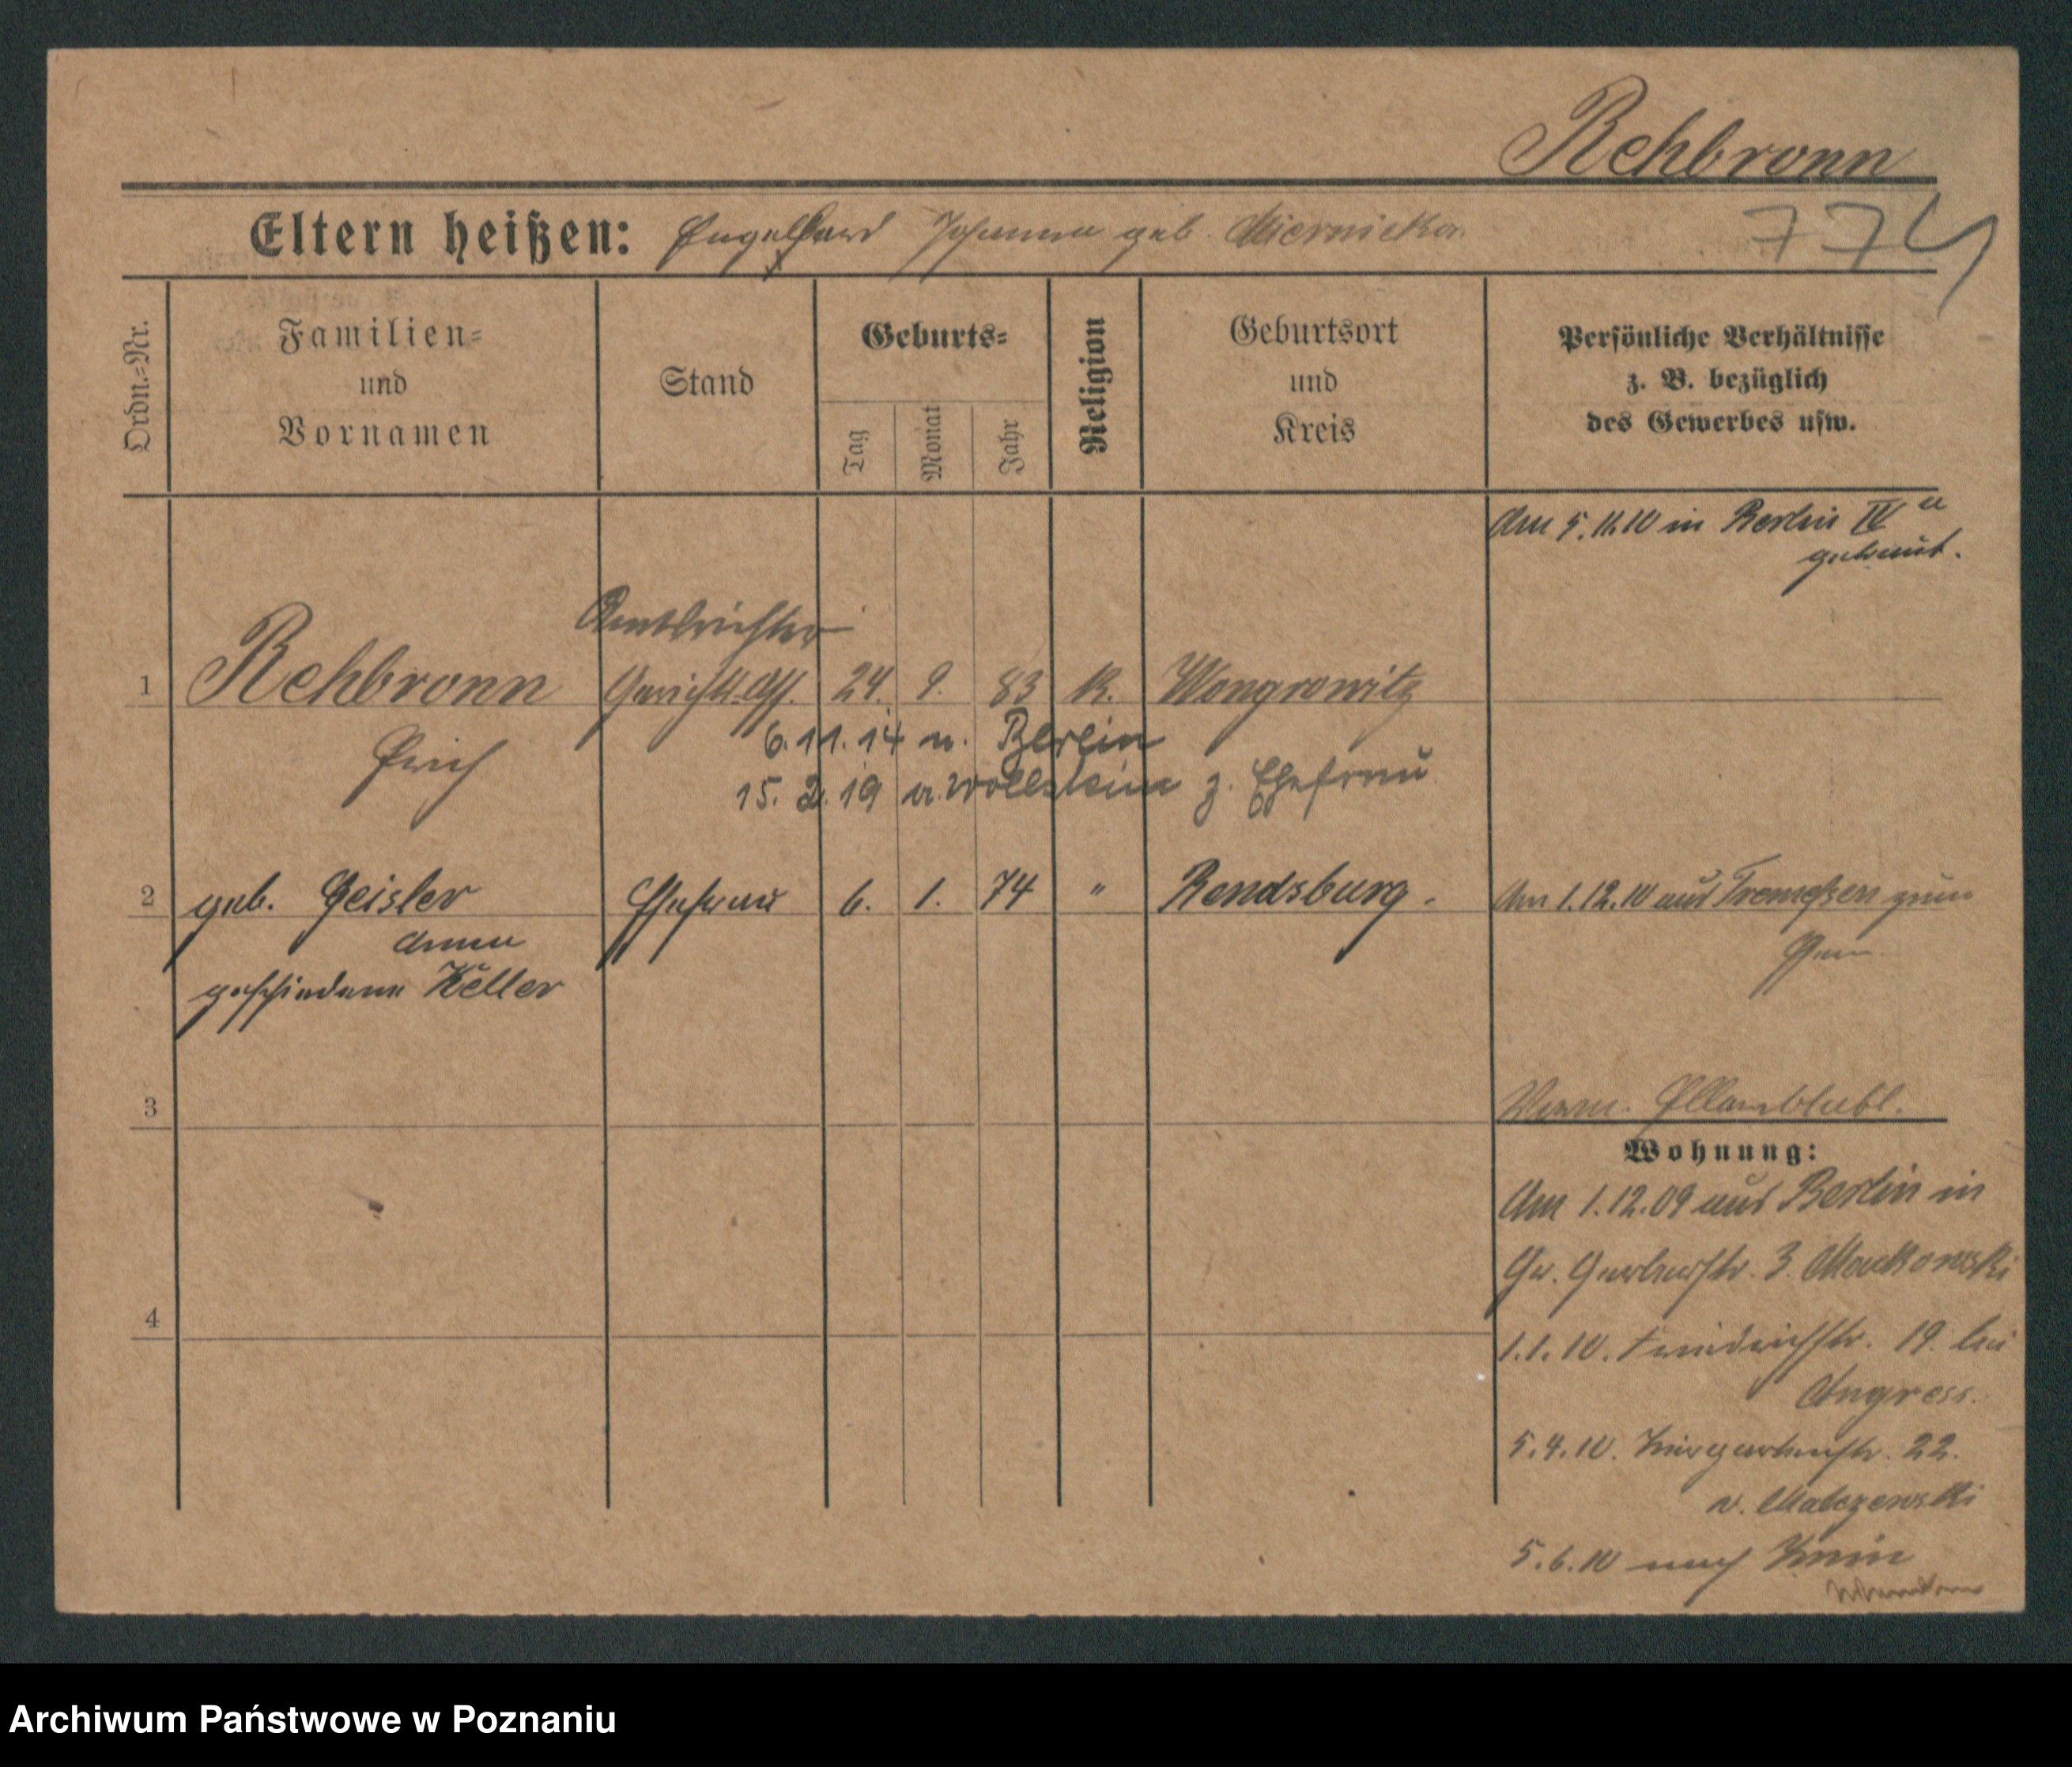 Rehbronn
Eltern heißen: Engelhard Johanna geb. Miernicka
774
Ordn.-Nr.
Familien=
und
Vornamen
Stand
Geburts=
Tag
Monat
Jahr
Religion
Geburtsort
und
Kreis
Persönliche Verhältnisse
z. B. bezüglich
des Gewerbes usw.
Am 5.11.10 in Berlin IV a
getraut.
Amtsrichter
1 Rehbronn Gerichts.Ass. 24. 9. 83 K. Wongrowitz
Erich
6.11.14 n. Berlin
15. 2. 19 n. Wollstein z. Ehefrau
2 geb. Geisler Ehefrau 6. 1. 74 " Rendsburg.
Anna
geschiedene Keller
Am 1.12.10 aus Tremessen zum
3
Wohnung:
Am 1.12.09 aus Berlin in
Gr. Gerberstr. 3. Mackowski
4
1.1.10. Friedrichstr. 19. bei
Angress.
5.4.10. Tiergartenstr. 22.
v. Malczewski
5.6.10 nach Znin
Archiwum Państwowe w Poznaniu